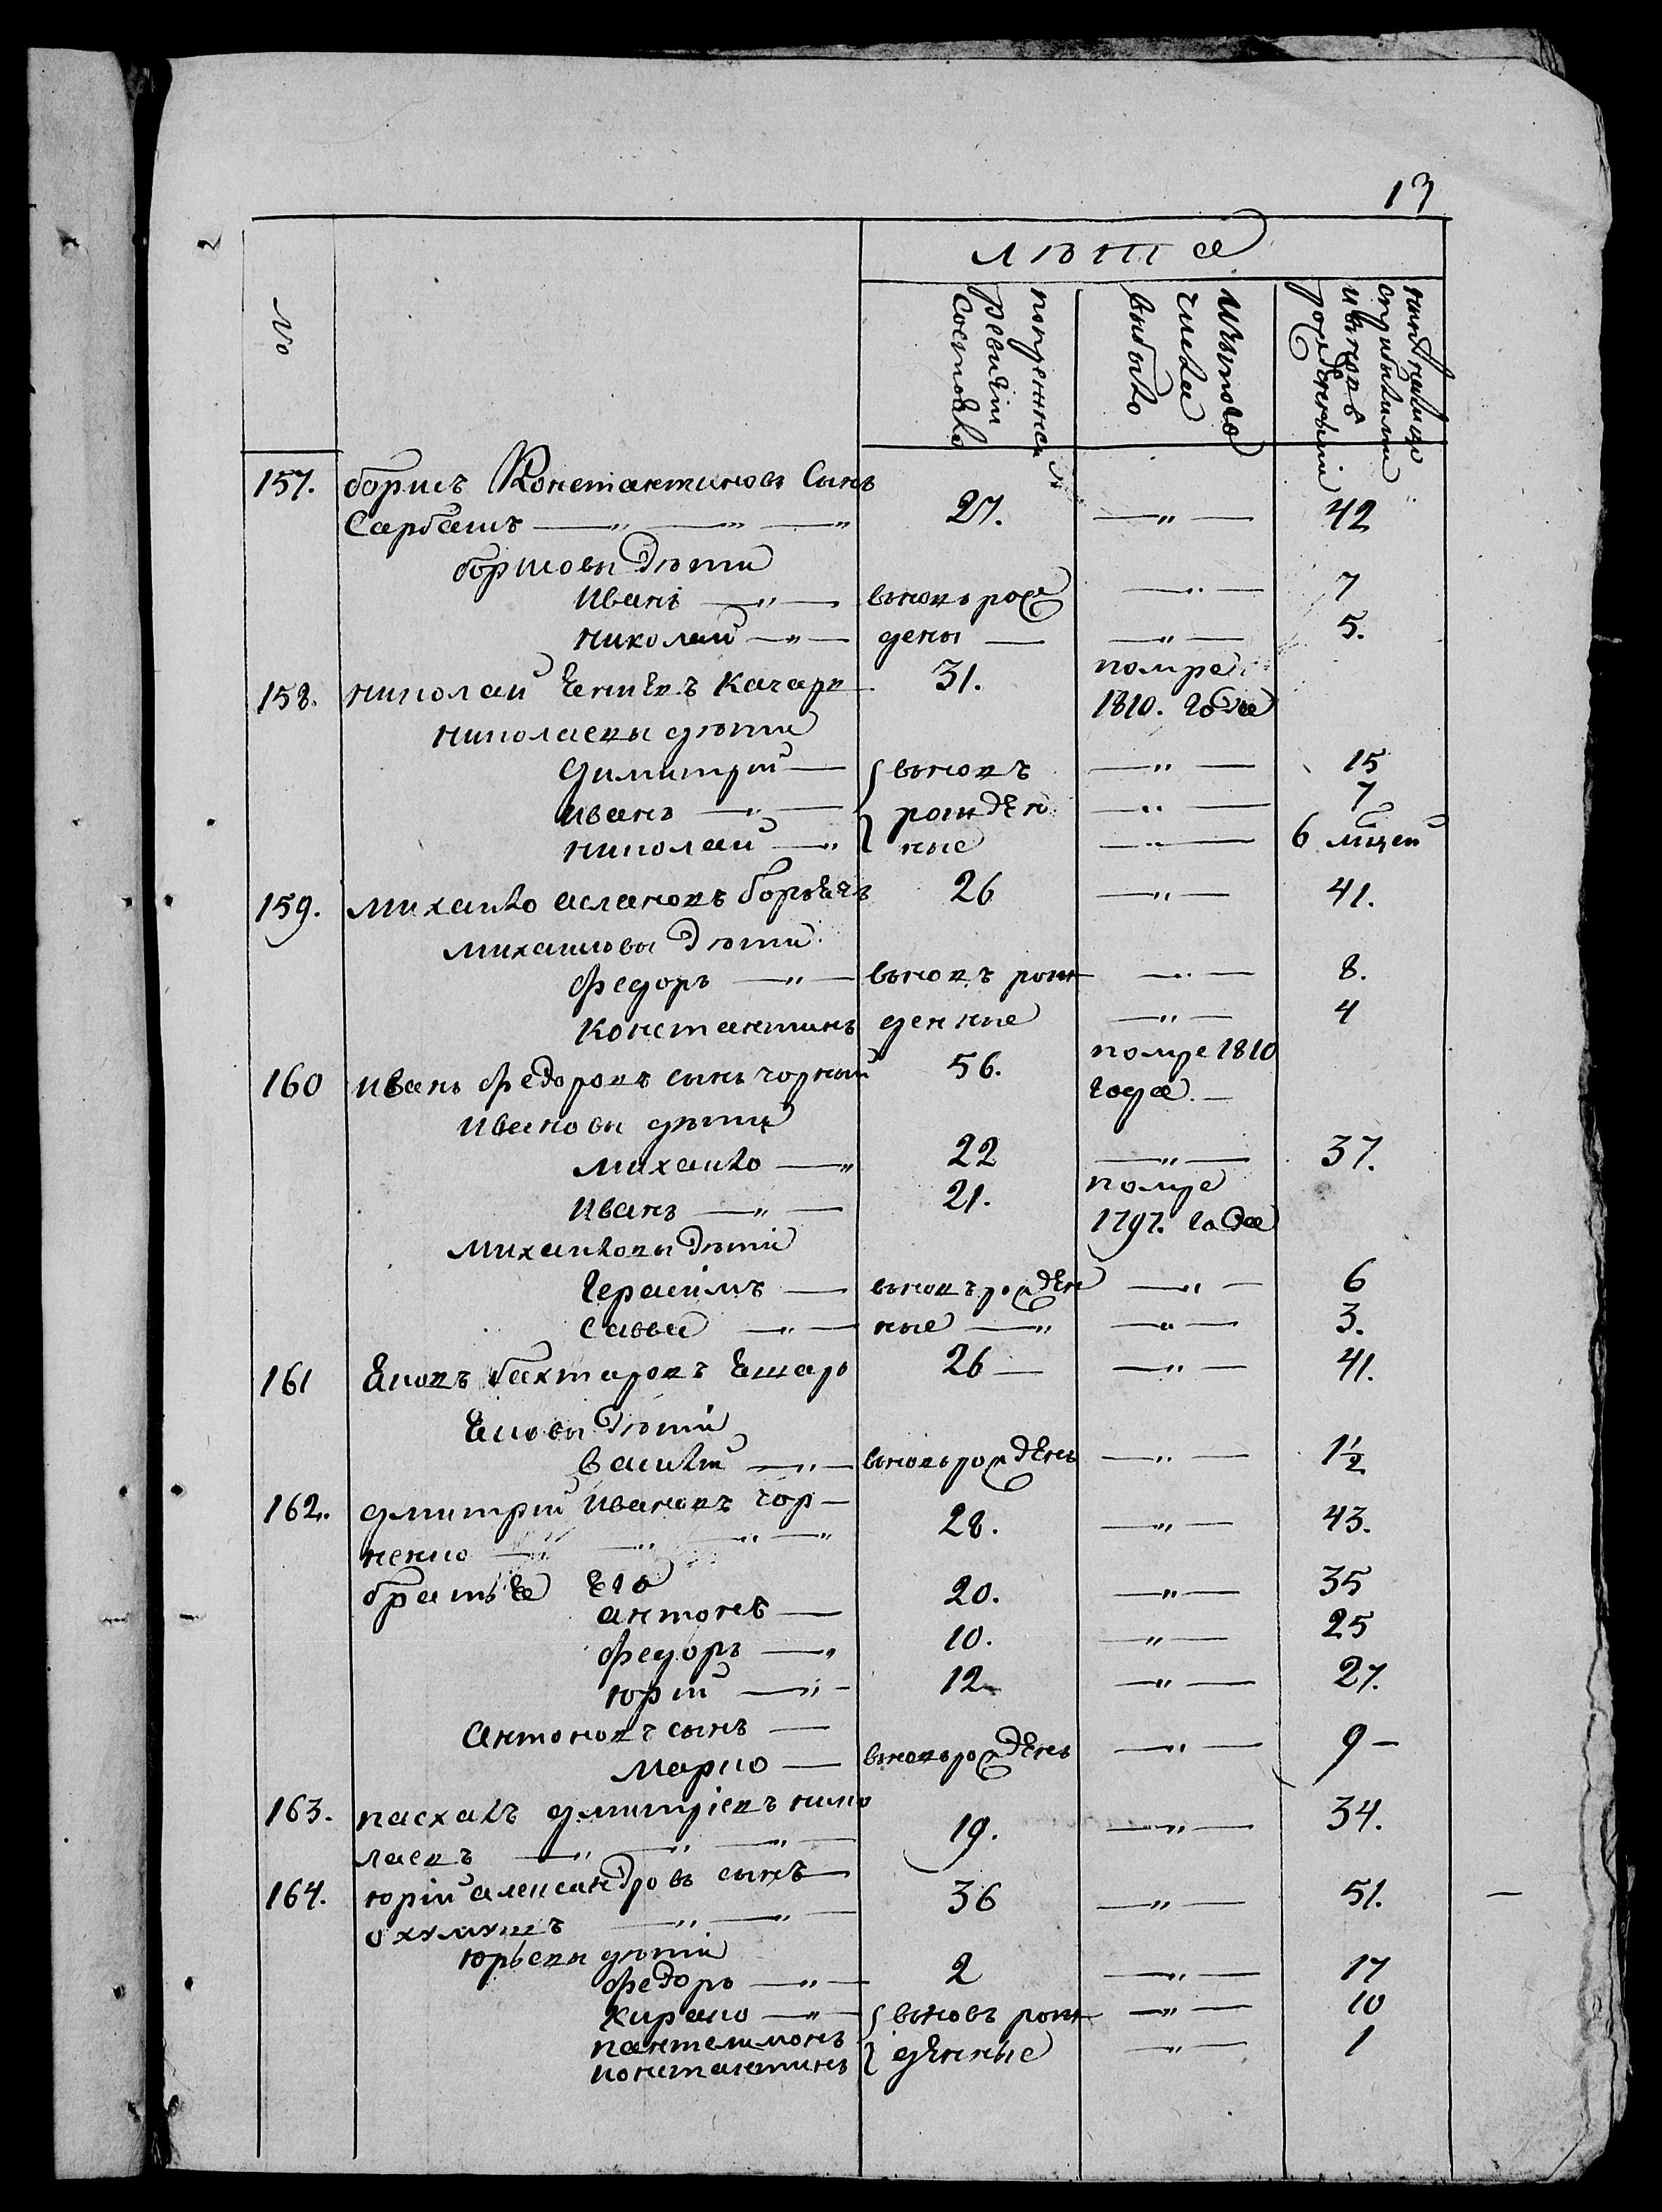 13
лѣта
№
попрежней
ревизіи
состояло
Изътого
числа
выбыло
ныне налицо
сприбылыми
ивновь
рожденными
157. борисъ Константиновъ Сынъ
Сарбашъ —„— —„— —„ 27. —„— 42
борисовы дѣти
Иванъ —„— вновь рож —„— 7
николай —„— дены — —„— 5.
158. николай Качари 31. помре
1810. года
николаевы дѣти
димитрій — вновъ —„— 15
иванъ —„— рожден —„— 7
николай —„ ные —„— 6 мцей
159. михайло аслановъ 26 —„— 41.
михаиловы дѣти
федоръ —„— вновъ рож —„— 8.
константинъ денные —„— 4
160 иванъ федоровъ сынъ чорный 56. помре 1810
года. —
ивановы дѣти
михайло —„ 22 —„— 37.
иванъ —„— 21. помре
1797. года
михайловы дѣти
Герасимъ — вновъ рожден —„— 6
савва —„— ные —„ —„— 3.
161 бахтаровъ 26 — —„— 41.
дѣти
василій —„— вновь рожденъ —„— 1½
162. дмитрій ивановъ чор—
ненко —„ —„ —„ —„ 28. —„— 43.
братья его
антонъ — 20. —„— 35
федоръ —„ 10. —„— 25
юрій —„— 12 —„— 27.
антоновъ сынъ —
марко — вновь рожденъ —„— 9 —
163. пасхалъ дмитріевъ нико
лаевъ —„ —„ —„— 19. —„— 34.
164. юрій александровъ сынъ —
—„ —„ — 36 —„— 51.
юрьевы дѣти
федоръ —„— 2 —„— 17
Кирако —„— вновъ рож —„— 10
пантелимонъ
константинъ денные —„— 1